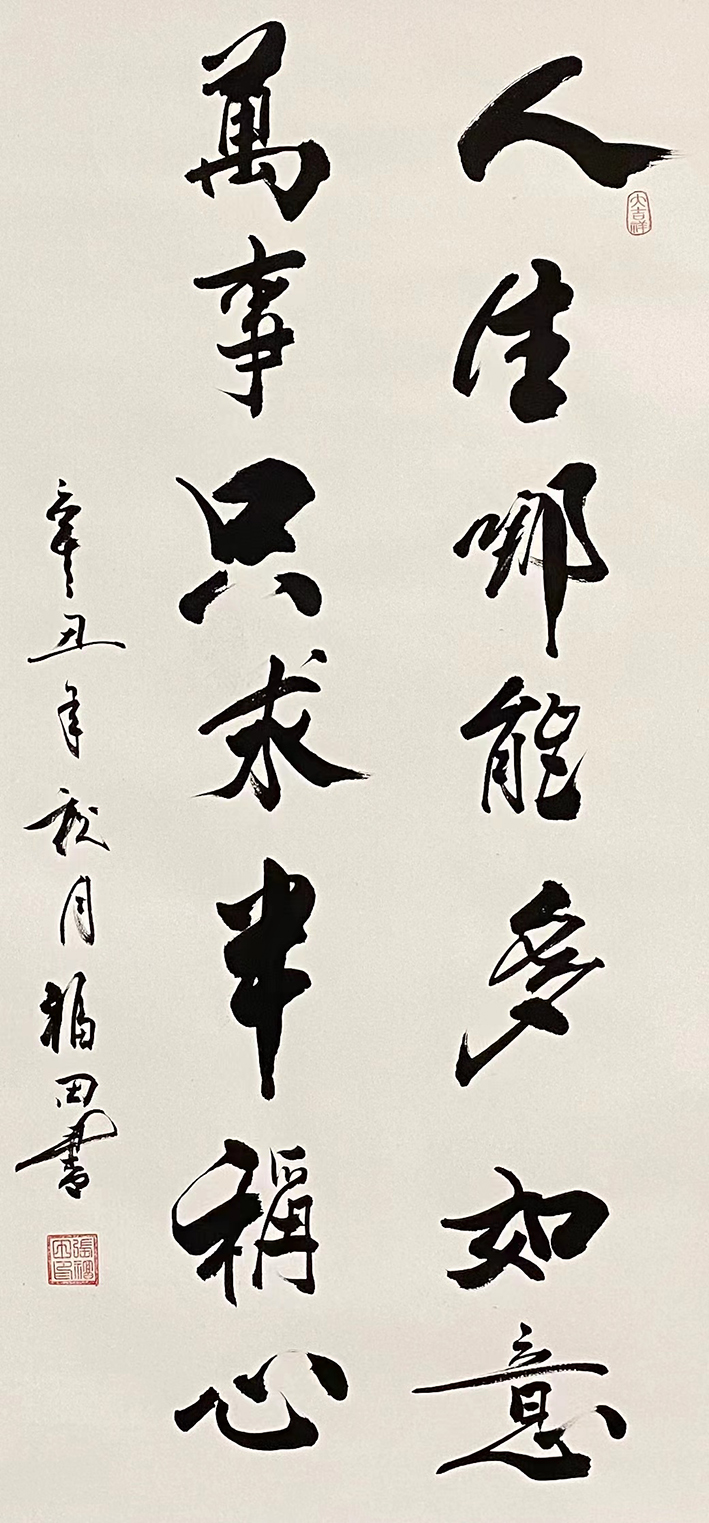 人生哪能多如意
大吉祥
萬事只求半稱心
辛丑年秋月福田書
張福田印